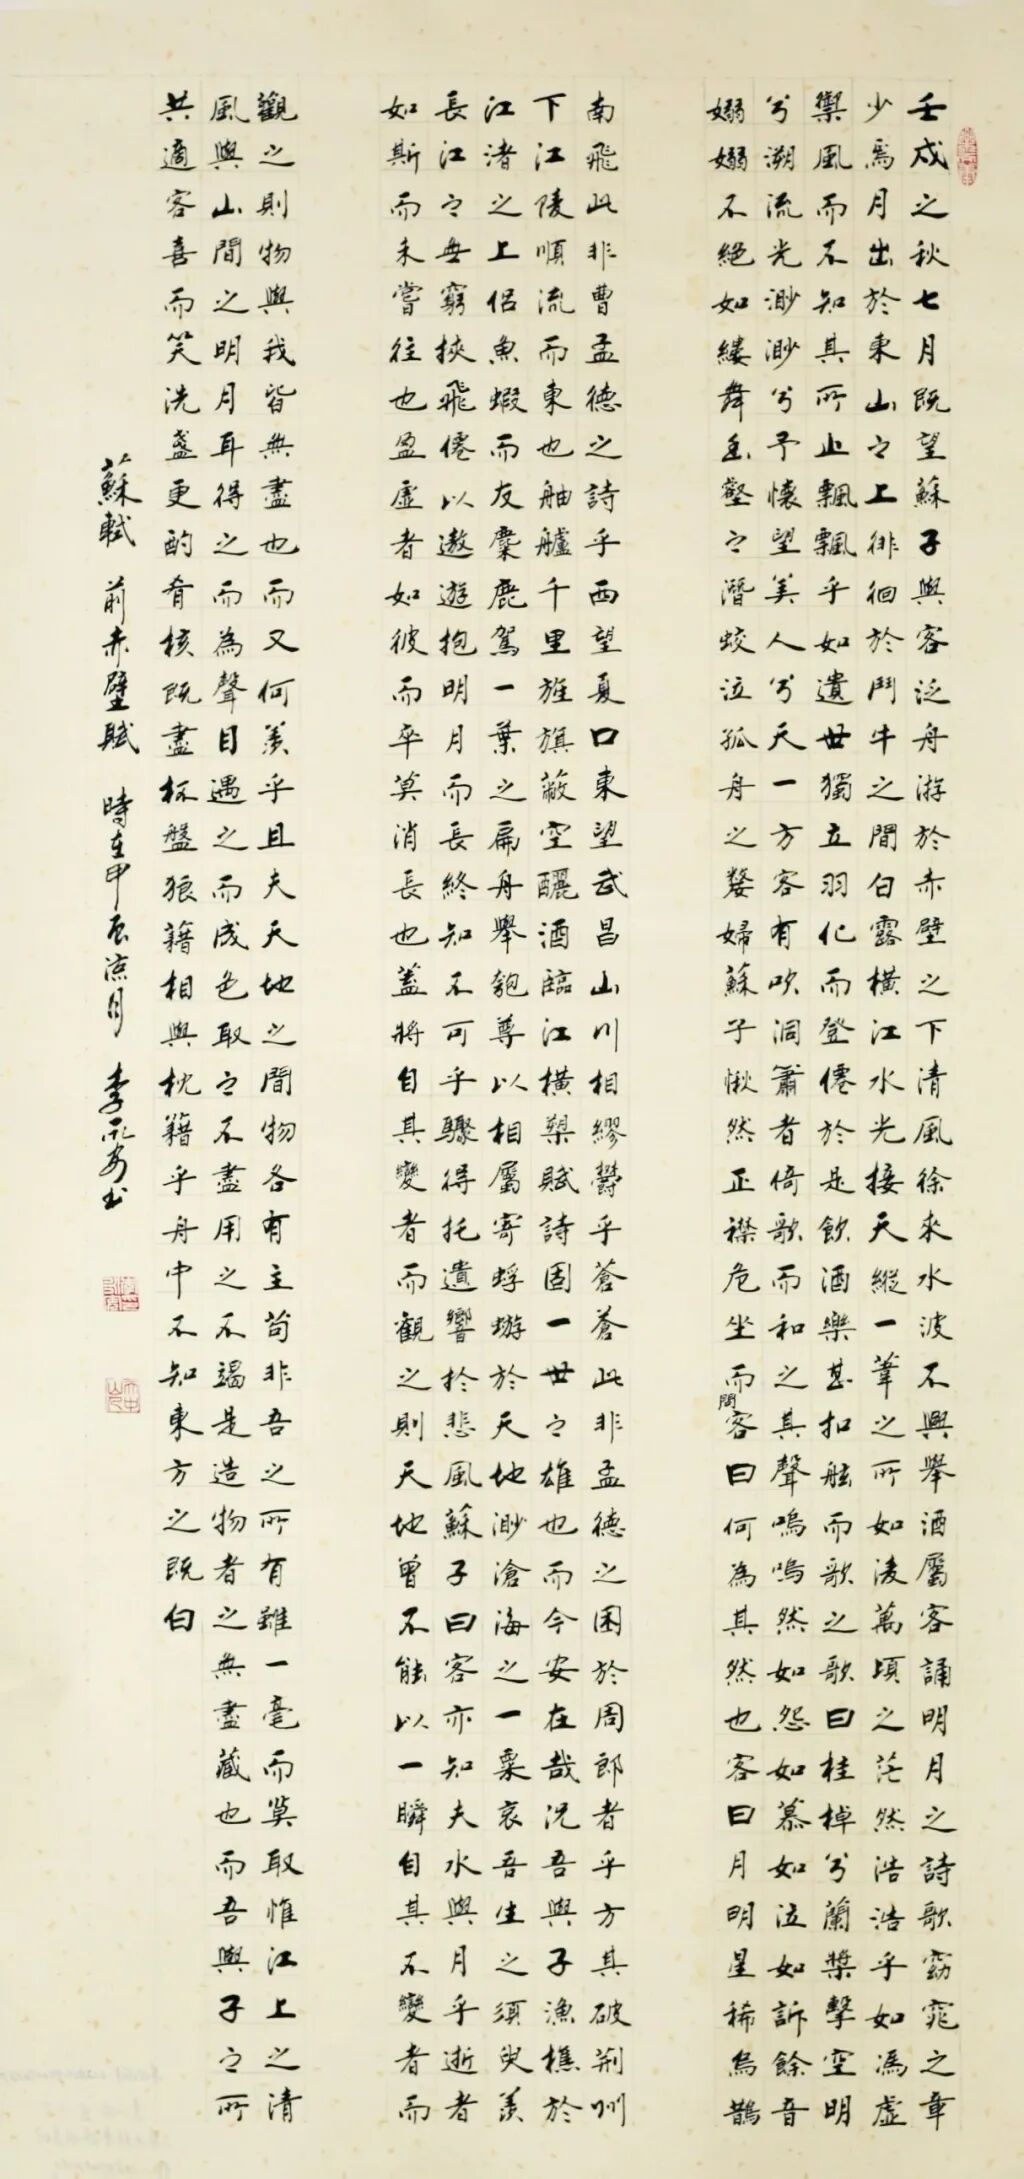 壬戌之秋七月既望蘇子與客泛舟游於赤壁之下清風徐來水波不興舉酒屬客誦明月之詩歌窈窕之章
少焉月出於東山之上徘徊於鬥牛之間白露橫江水光接天縱一葦之所如凌萬頃之茫然浩浩乎如馮虛
禦風而不知其所止飄飄乎如遺世獨立羽化而登僊於是飲酒樂甚扣舷而歌之歌曰桂棹兮蘭槳擊空明
兮溯流光渺渺兮予懷望美人兮天一方客有吹洞簫者倚歌而和之其聲嗚嗚然如怨如慕如泣如訴餘音
嫋嫋不絕如縷舞幽壑之潛蛟泣孤舟之嫠婦蘇子愀然正襟危坐而問客曰何為其然也客曰月明星稀烏鵲
南飛此非曹孟德之詩乎西望夏口東望武昌山川相繆鬱乎蒼蒼此非孟德之困於周郎者乎方其破荊州
下江陵順流而東也舳艫千里旌旗蔽空釃酒臨江橫槊賦詩固一世之雄也而今安在哉況吾與子漁樵於
江渚之上侶魚蝦而友麋鹿駕一葉之扁舟舉匏尊以相屬寄蜉蝣於天地渺滄海之一粟哀吾生之須臾羨
長江之毋窮挾飛僊以遨遊抱明月而長終知不可乎驟得托遺響於悲風蘇子曰客亦知夫水與月乎逝者
如斯而未嘗往也盈虛者如彼而卒莫消長也蓋將自其變者而觀之則天地曾不能以一瞬自其不變者而
觀之則物與我皆無盡也而又何羨乎且夫天地之間物各有主苟非吾之所有雖一毫而莫取惟江上之清
風與山間之明月耳得之而為聲目遇之而成色取之不盡用之不竭是造物者之無盡藏也而吾與子之所
共適客喜而笑洗盞更酌肴核既盡杯盤狼藉相與枕藉乎舟中不知東方之既白
蘇軾 前赤壁賦 時在甲辰涼月 李